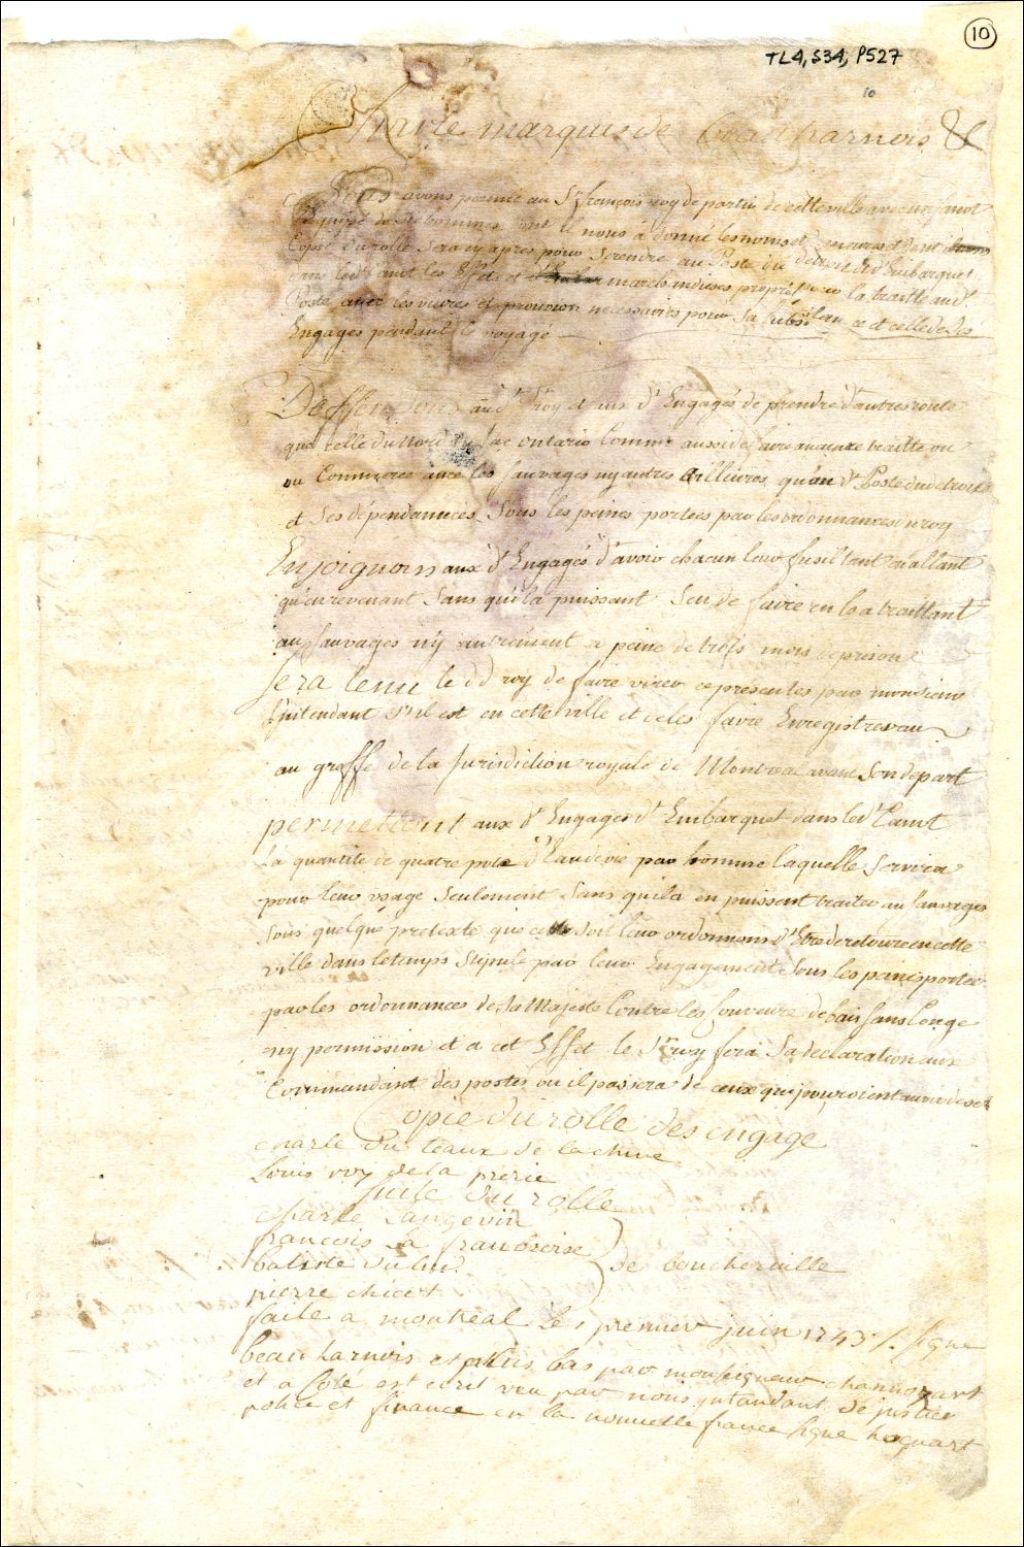 10
TL4,S34,P527
10
Charle marquis de beauharnois &
Nous avons permis au Sr françois roy de partir de cette ville avec un canot
Equipé de six hommes dont il nous à donné les noms et demeures et dont
Copie du rolle sera cy apres pour Se rendre au Poste du detroit et d'Embarquer
dans led. canot les Effets et marchandises propres pour la traitte aud
Poste avec les vivres et provision necessaires pour Sa subsistance et celle de Ses
Engages pendant le voyage
Deffendons aud Sr roy et aus dt Engagés de prendre d'autres route
que celle du Nord du lac ontario Comme aussi de faire aucune traitte ou
ou Commerce avec les Sauvages ny autres ailleures qu'au dt Poste du detroit
et Ses dépendances Sous les peines portées par les ordonnances du roy
Enjoignons aux dt Engagés d'avoir chacun leur fusil tant en allant
qu'en revenant Sans qu'ils puissent S'en de faire en les traittant
au Sauvages n'y autrement a peine de trois mois de prison
Sera tenu le dt roy de faire viser ce presentes par monsieur
l'intendant s'il est en cette ville et de les faire Enregistrer au
au greffe de la Jurisdiction royale de Montreal avant Son depart
permettont aux dt Engagés dt Embarquer dans led Canot
La quantite de quatre pots d'Eaudevie par homme laquelle Servira
pour leur usage Seulement Sans quils en puissent traiter au Sauvages
Sous quelque pretexte que ce soit leur ordonnons d'Etre de retoure en cette
ville dans le temps Stipulé par leur Engagement Sous les peines portée
par les ordonnances de Sa Majesté Contre les Coureure de bois Sans Conge
ny permission et a cet Effet le Sr roy fera Sa declaration aux
Commandant des postes ou il passera de ceux qui pouroient
Copie du rolle des engage
charle de la chine
Louis roy de la prerie
Suite du rolle
charle Langevin
francois la
batiste
pierre chicot
de boucherville
faite a montreal le premier juin 1743 /. signe
beauharnois et plus bas par monseigneur
et a Coté est ecrit veu par nous intandant de justice
police et finance en la nouvelle france signe hocquart